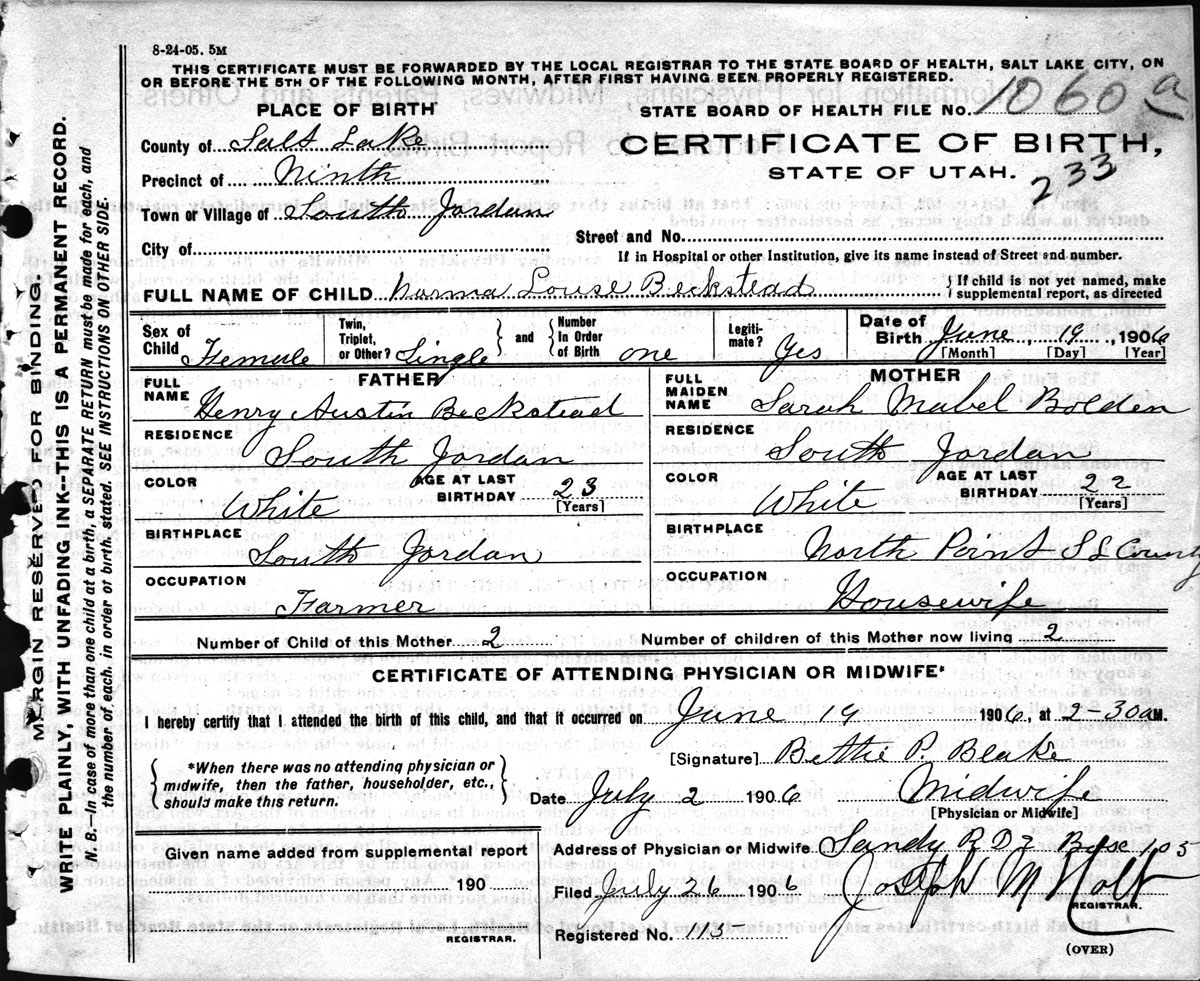 8-24-05. 5M
THIS CERTIFICATE MUST BE FORWARDED BY THE LOCAL REGISTRAR TO THE STATE BOARD OF HEALTH, SALT LAKE CITY, ON
OR BEFORE THE 5TH OF THE FOLLOWING MONTH, AFTER FIRST HAVING BEEN PROPERLY REGISTERED.
PLACE OF BIRTH
STATE BOARD OF HEALTH FILE No. 1060 a
County of Salt Lake
CERTIFICATE OF BIRTH,
STATE OF UTAH.
233
Precinct of Ninth
Town or Village of South Jordan
City of
Street and No.
If in Hospital or other Institution, give its name instead of Street and number.
FULL NAME OF CHILD Norma Louse Beckstead
{ If child is not yet named, make
supplemental report, as directed
Sex of Child Female
Twin, Triplet, or Other? Single } and { Number In Order of Birth one
Legiti-mate? Yes
Date of Birth June 19, 1906
[Month] [Day] [Year]
FATHER
MOTHER
FULL NAME Henry Austin Beckstead
FULL MAIDEN NAME Sarah Mabel Bolden
RESIDENCE South Jordan
RESIDENCE South Jordan
COLOR White AGE AT LAST BIRTHDAY 23 [Years]
COLOR White AGE AT LAST BIRTHDAY 22 [Years]
BIRTHPLACE South Jordan
BIRTHPLACE North Point S L County
OCCUPATION Farmer
OCCUPATION Housewife
Number of Child of this Mother 2 Number of children of this Mother now living 2
CERTIFICATE OF ATTENDING PHYSICIAN OR MIDWIFE*
I hereby certify that I attended the birth of this child, and that it occurred on June 19 1906, at 2 30 a M.
{ *When there was no attending physician or
midwife, then the father, householder, etc.,
should make this return. }
[Signature] Bettie P. Blake
Date July 2 1906 Midwife
[Physician or Midwife]
Given name added from supplemental report
190
REGISTRAR.
Address of Physician or Midwife Sandy R D 2 Box 105
Filed July 26 1906 Joseph M Holt
REGISTRAR.
Registered No. 113
(OVER)
MARGIN RESERVED FOR BINDING.
WRITE PLAINLY, WITH UNFADING INK--THIS IS A PERMANENT RECORD.
N. B.--In case of more than one child at a birth, a SEPARATE RETURN must be made for each, and
the number of each, in order of birth, stated. SEE INSTRUCTIONS ON OTHER SIDE.